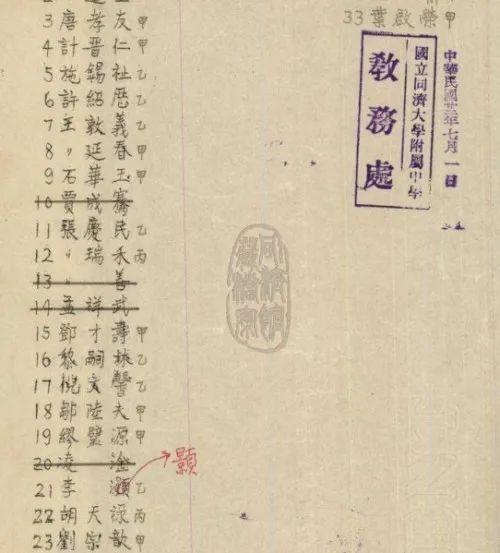 3 唐孝友 甲
4 計晋仁 甲
5 施錫祉 乙
6 許紹厝 乙
7 王敦義 乙
8 〃延春 甲
9 石華玉 甲
10 賈成騫
11 張慶民 乙
12 〃瑞禾 丙
13 〃善
14 孟祥武
15 鄧才壽 甲
16 黎嗣林 乙
17 倪文馨 乙
18 鄒陸夫 甲
19 繆璧源 甲
20 凌淦
21 李灝 乙
顥
22 胡天 丙
23 劉宗歆 甲
33 葉啟榮 甲
國立同濟大學附屬中學
教務處
中華民國年七月一日